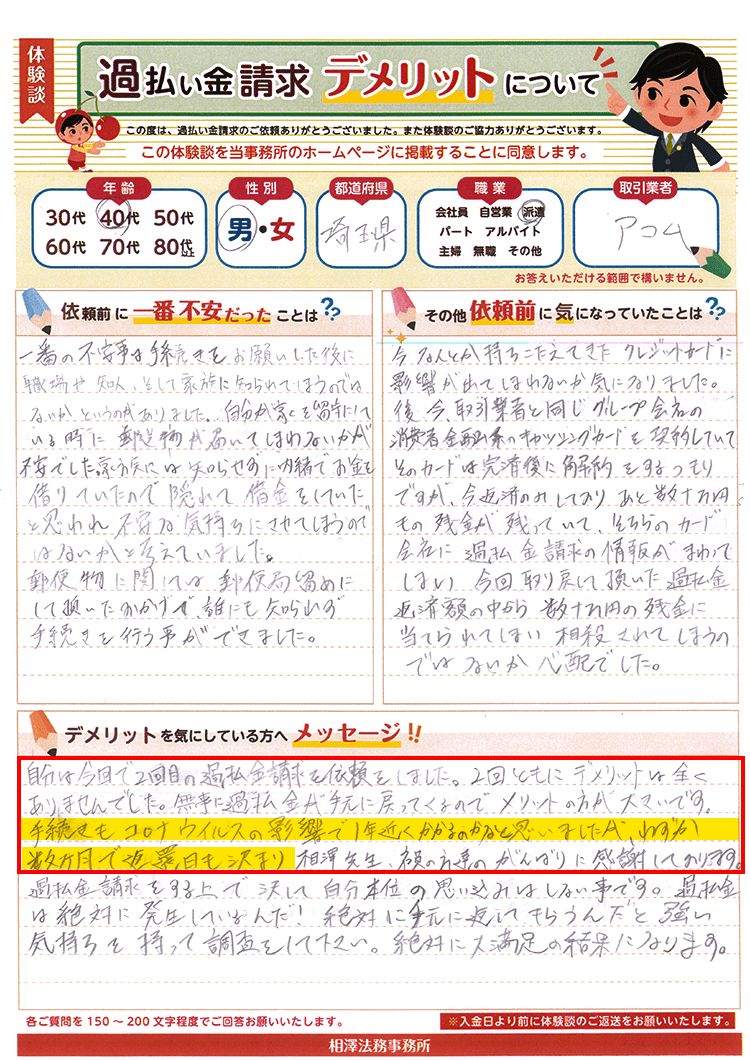 体験談
過払い金請求 デメリットについて
この度は、過払い金請求のご依頼ありがとうございました。また体験談のご協力ありがとうございます。
この体験談を当事務所のホームページに掲載することに同意します。
年齢
30代 40代 50代
60代 70代 80代以上
性別
男・女
都道府県
埼玉県
職業
会社員 自営業 派遣
パート アルバイト
主婦 無職 その他
取引業者
アコム
お答えいただける範囲で構いません。
依頼前に一番不安だったことは??
一番の不安事は手続きをお願いした後に
職場や知人、そして家族に知られてしまうのでは
ないかというのがありました。自分が家を留守にして
いる時に郵送物が届いてしまわないかが
不安でした家族には知らせずに内緒でお金を
借りていたので隠れて借金をしていた
と思われ不安な気持ちにさせてしまうので
はないかと考えていました。
郵便物に関しては郵便局留めに
して頂いたおかげで、誰にも知られず
手続きを行う事ができました。
その他依頼前に気になっていたことは??
今なんとか持ちこたえてきたクレジットカードに
影響が出てしまわないか気になりました。
後、今取引業者と同じグループ会社の
消費者金融系のキャッシングカードを契約していて
そのカードは完済後に解約をするつもり
ですが、今返済のみしておりあと数十万円
もの残金が残っていて、そちらのカード
会社に過払金請求の情報がまわって
しまい今回取り戻して頂いた過払金
返済額の中から数十万円の残金に
当てられてしまい相殺されてしまうの
ではないか心配でした。
デメリットを気にしている方へメッセージ!!
自分は今回で2回目の過払金請求を依頼をしました。2回ともにデメリットは全く
ありませんでした。無事に過払金が手元に戻ってくるので、メリットの方が大きいです。
手続きもコロナウイルスの影響で1年近くかかるのかなと思いましたが、わずか
数ヵ月で返還日も決まり相澤先生、のがんばりに感謝しております。
過払金請求をする上で決して自分本位の思い込みはしない事です。過払金
は絶対に発生しているんだ!絶対に手元に返してもらうんだと強い
気持ちを持って調査をして下さい。絶対に大満足の結果になります。
各ご質問を150～200文字程度でご回答お願いいたします。
※入金日より前に体験談のご返送をお願いいたします。
相澤法務事務所